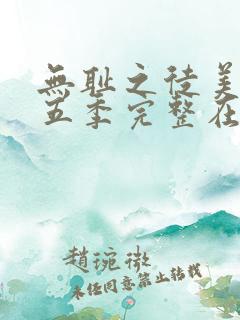 無耻之徒美
五季完整在
趙琬微
未任同意禁止转载